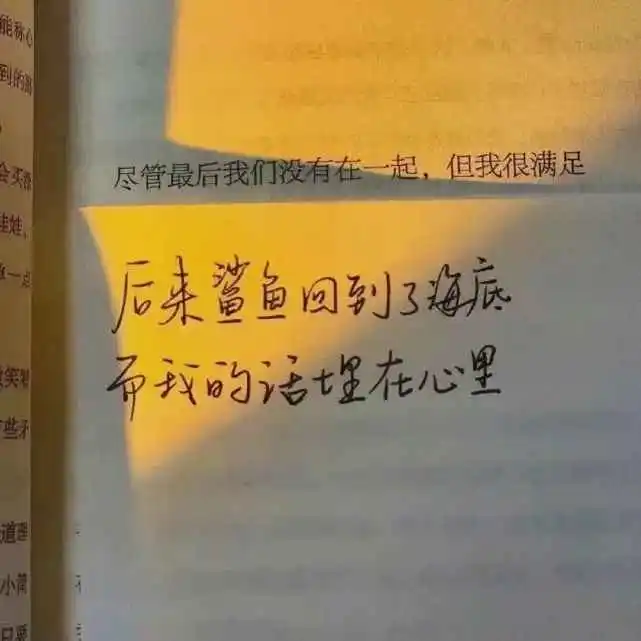 能称心
到的
会买
娃娃，
一点
尽管最后我们没有在一起，但我很满足
后来鲨鱼回到了海底
而我的话埋在心里
微笑
些矛
道理
小简
只要